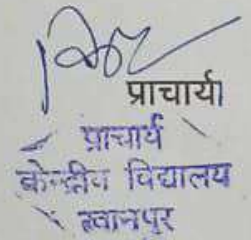 प्राचार्या
प्राचार्य
केन्द्रीय विद्यालय
खानपुर